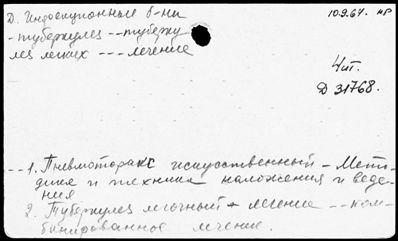 Д. Инфекционные б-ни 10.9.64. НР
- туберкулез -- туберку
лез легких --- лечение
Чит.
Д 31768.
-- 1. Пневмоторакс искусственный - Мето-
дика и техника наложения и веде-
ния
2. Туберкулез легочный - лечение -- ком-
бинированное лечение.